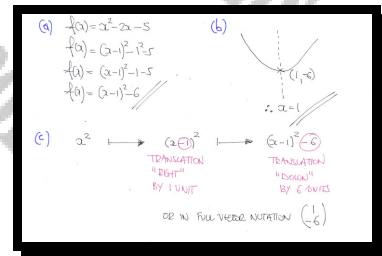 (a) f(x) = x² - 2x - 5
f(x) = (x-1)² - 1² - 5
f(x) = (x-1)² - 1 - 5
f(x) = (x-1)² - 6
(b)
(1,-6)
∴ x = 1
(c) x² ↦ (x-1)² ↦ (x-1)² - 6
TRANSLATION
"RIGHT"
BY 1 UNIT
TRANSLATION
"DOWN"
BY 6 UNITS
OR IN FULL VECTOR NOTATION (1 -6)